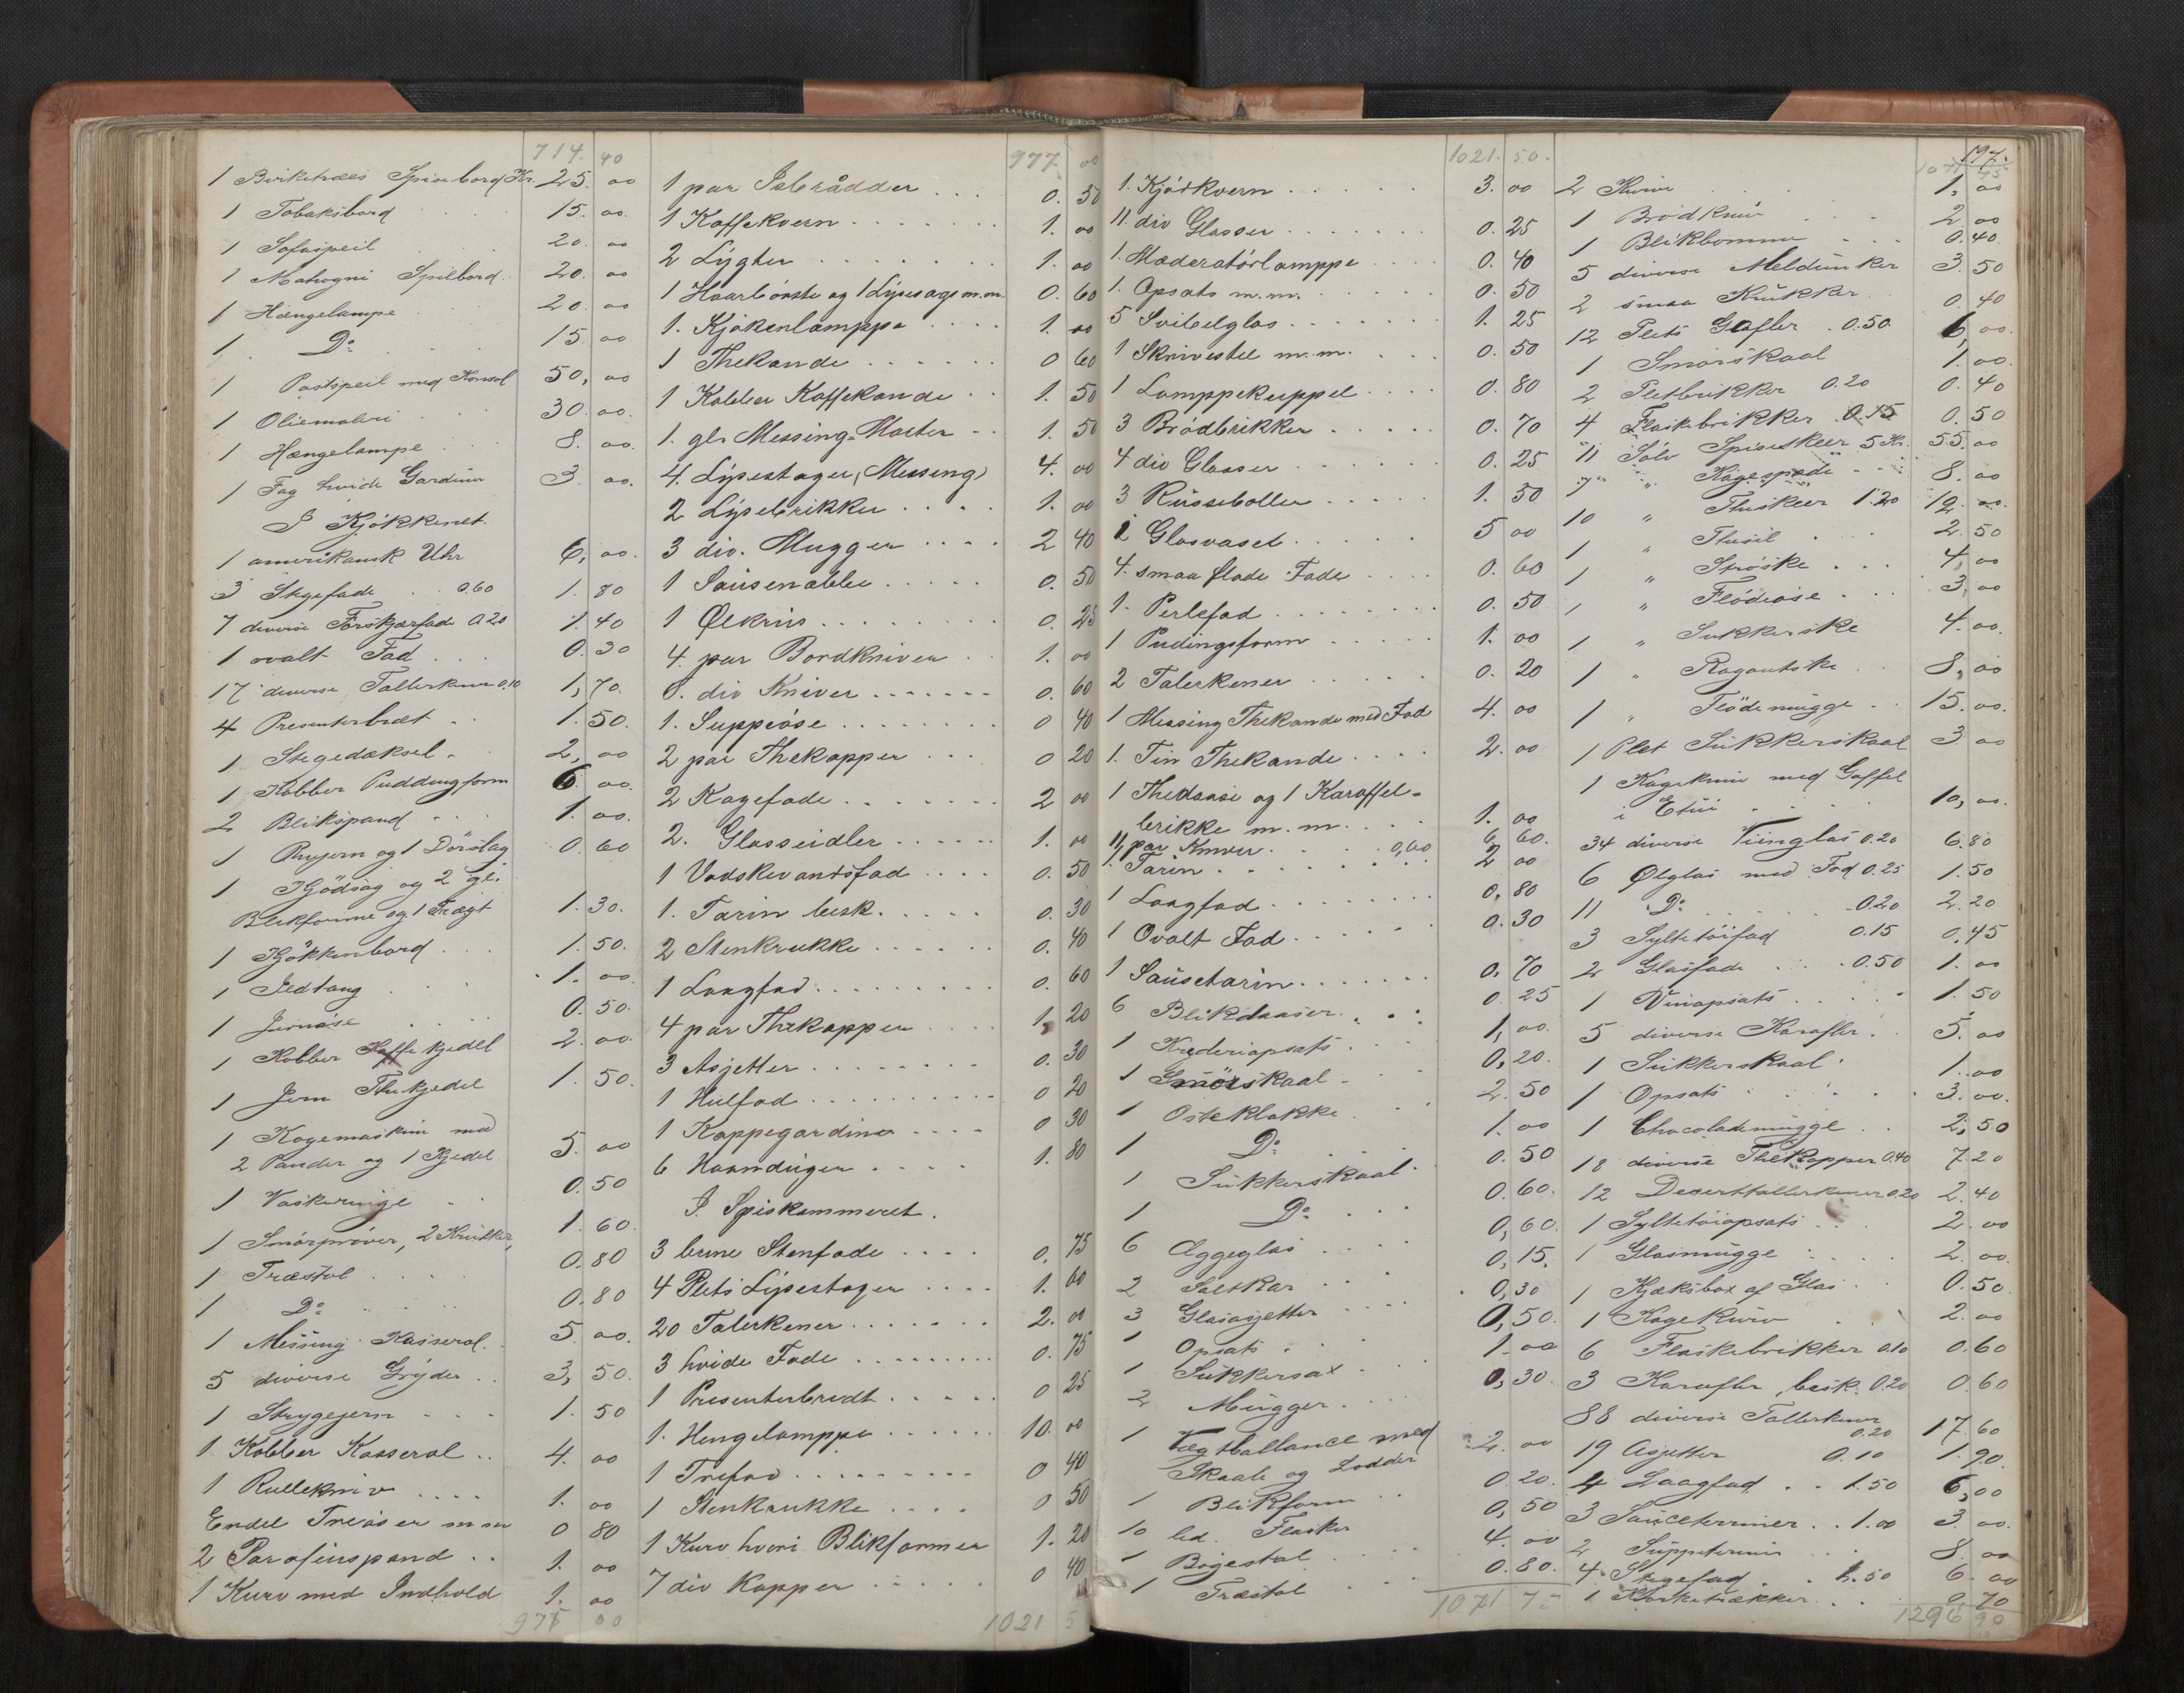 714. 40
1 Birketræes Spisebord Kr. 25. 00
1 Tobaksbord 15. 00.
1 Sofaspeil 20. 00
1 Mahogni Spilbord. 20. 00
1 Hængelampe 20. 00
1 Do 15. 00
1 Postspeil med Konsol 50, 00
1 Oliemaleri 30. 00.
1 Hængelampe 8. 00.
1 Fag hvide Gardiner 3. 00.
I Kjøkkenet.
1 amerikansk Uhr 6, 00.
3 Stegefade 0.60 1. 80
7 diverse Forskjærfade 0.20 1. 40
1 ovalt Fad 0. 30
17 diverse Tallerkener 0.10 1, 70.
4 Presenterbræt 1. 50.
1 Stegedæksel 2, 00
1 Kobber Puddingform 6. 00.
2 Blikspand 1. 00.
1 og 1 Dørslag 0. 60
1 Kjødsag og 2 gl.
Blikforme og 1 Trægt 1. 30.
1 Kjøkkenbord 1. 50.
1 Ildtang 1. 00.
1 Jernøse 0. 50.
1 Kobber Kaffekjedel 2. 00.
1 Jern Thekjedel 1. 50.
1 Kogemaskin med
2 Pander og 1 Kjedel 5. 00
1 0. 50
1 Smørprøver, 2 Krukker, 1. 60.
1 Træstol 0. 80
1 Do 0. 80
1 Messing Kasserol. 5. 00.
5 diverse Gryder 3, 50.
1 Strygejern 1. 50
1 Kobber Kasserol 4. 00
1 Rullekniv 1. 00
Endel Treøser m m 0 80
2 Parafinspand 1. 00
1 Kurv med Indhold 1. 00
977 00
977 00
1 par Isbrådder 0. 30
1 Kaffekvern 1. 00
2 Lygter 1. 00
1 Haarbørste og 1 Lysesags m.m. 0. 60
1. Kjøkenlamppe 1. 00
1 Thekande 0 60
1 Kobber Kaffekande 1. 50
1. gl. Messing Morter 1. 50
4. Lysestager (Messing) 4. 00
2 Lysebrikker 1. 00
3 div. Mugger 2 40
1 Sausenæbbe 0. 50
1 Ølkrus 0. 25
4. par Bordkniver 1. 00
6. div Kniver 0. 60
1. Suppeøse 0 40
2 par Thekopper 0 20
2 Kagefade 2 00
2. Glasseidler 1. 00
1 Vadskevandsfad 0. 50
1. Tarin besk. 0. 30
2 Stenkrukke 0. 40
1 Langfad 0. 60
4 par Thekopper 1, 20
3 Asjetter 0. 30
1 Hulfad 0 20
1 Kappegardiner 0 30
6 Haandduger 1. 80
I. Spiskammeret.
3 brune Stenfade 0. 75
4 Plets Lysestager 1. 60
20 Talerkener 2. 00
3 hvide Fade 0. 75
1 Presenterbredt 0 25
1. Hengelamppe 10. 00
1 Trefad 0 40
1 Stenkrukke 0 50
1 Kurv hvori Blikformer 1. 20
7 div Kopper 0 40
1021 5
1021. 50.
1. Kjødkvern 3. 00
11 div Glasser 0. 25
1. Moderatørlamppe 0. 40
1. Opsats m.m. 0. 50
5 Svibelglas 1. 25
1 Skrivestel m.m. 0. 50
1 Lamppekuppel 0. 80
3 Brødbrikker 0. 70
4 div Glasser 0. 25
3 Russeboller 1. 50
2 Glasvaser 5 00
4. smaa flade Fade 0. 60
1. Perlefad 0. 50
1 Pudingsform 1. 00
2 Talerkener 0. 20
1 Messing Thekande med Fad 4. 00
1. Tin Thekande 2. 00
1 Thedaase og 1 Karaffel-
brikke m.m. 1. 00
11 par Kniver 0,60 6 60.
1. Tarin 2 00
1 Langfad 0, 80
1 Ovalt Fad 0. 30
1 Sausetarin 0, 70
6 Blikdaaser 0. 25
1 Krøderiopsats 1, 00.
1 Smørskaal 0, 20.
1 Osteklokke 2. 50
1 Do 1. 00
1 Sukkerskaal 0. 50
1 Do 0. 60.
6 Æggeglas 0, 60.
2 Saltkar 0, 15.
3 Glasasjetter 0, 30
1 Opsats 0, 50.
1 Sukkersax 1. 00
2 Mugger 0, 30.
1 Vægtballance med
Skaale og Lodder 2. 00
1 Blikform 0. 20.
10 led. Flasker 0, 50
1 Bøgestol 4. 00
1 Træstol 0. 80.
1071 75
197.
1071 75
2 Knive 1, 00
1 Brødkniv 2 00
1 Blikbomme 0. 40.
5 diverse Meldunker 3. 50
2 smaa Krukker 0. 40
12 Plets Gafler 0.50. 6, 00.
1 Smørskaal 1. 00.
2 Pletbrikker 0.20 0. 40
4 Flaskebrikker 0.15 0. 50
11 Sølv Spiseskeer 5 Kr. 55. 00
1 " Kagespade 8. 00
10 " Theskeer 1.20 12. 00.
1 " Thesil 2. 50
1 " Strøske 4, 00
1 " Flødeøse 3, 00
1 " Sukkerske 4. 00.
1 " Ragoutske 8, 00
1 " Flødemugge 15. 00.
1 Plet Sukkerskaal 3. 00
1 Kagekniv med Gaffel
i Etui 10, 00.
34 diverse Viinglas 0.20 6. 80
6 Ølglas med Fod 0.25 1. 50
11 Do 0.20 2. 20
3 Syltetøifad 0.15 0. 45
2 Glasfade 0.50 1. 00
1 Vinopsats 1. 50
5 diverse Karafler 5. 00
1 Sukkerskaal 1. 00
1 Opsats 3. 00.
1 Chocolademugge 2, 50
18 diverse Thekopper 0.40 7. 20
12 Deserttallerkener 0.20 2. 40
1 Syltetøiopsats 2. 00
1 Glasmugge 2. 00.
1 Kjæksbox af Glas 0. 50.
1 Kagekurv 2. 00
6 Flaskebrikker 0.10 0. 60
3 Karafler, besk. 0.20 0. 60
88 diverse Tallerkener
0.20 17. 60
19 Asjetter 0.10 1. 90.
4 Laagfad 1.50 6, 00
3 Sauceterriner 1.00 3. 00.
2 Suppeterrin 8. 00
4 Stegefad 1.50 6. 00
1 Korketrækker 0. 70
1296 90